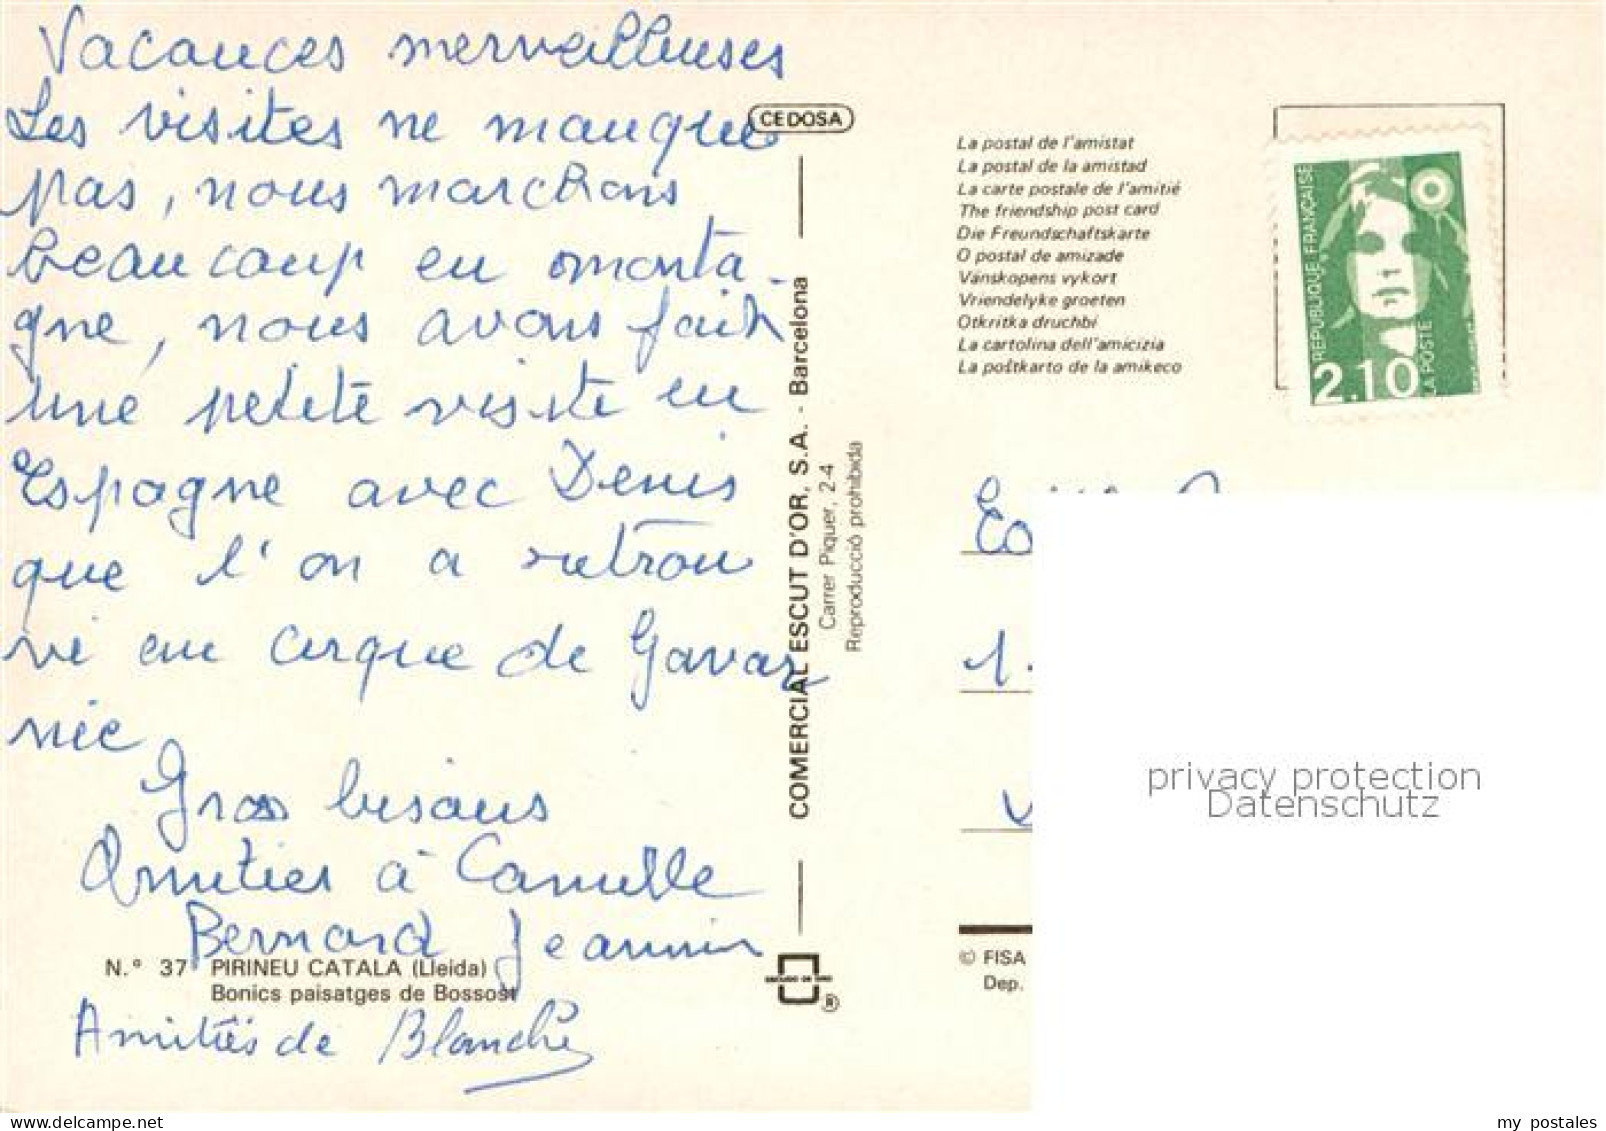 Vacances merveilleuses
Les visites ne manque
pas, nous marchons
beaucoup en monta-
gne, nous avons fait
une petite visite en
Espagne avec Denis
que l'on a retrou
vé au cirque de Gavar
nie
Gros bisous
Amitiés à Camille
Bernard Jeannin
Amitiés de Blanche
N.º 37 PIRINEU CATALA (Lleida)
Bonics paisatges de Bossost
CEDOSA
COMERCIAL ESCUT D'OR, S.A. - Barcelona
Carrer Piquer, 2-4
Reproducció prohibida
ESCUDO DE ORO
®
La postal de l'amistat
La postal de la amistad
La carte postale de l'amitié
The friendship post card
Die Freundschaftskarte
O postal de amizade
Vänskopens vykort
Vriendelyke groeten
Otkritka druchbi
La cartolina dell'amicizia
La poŝtkarto de la amikeco
REPUBLIQUE FRANÇAISE
2.10
LA POSTE
1.
© FISA
Dep.
privacy protection
Datenschutz
www.delcampe.net
my_postales